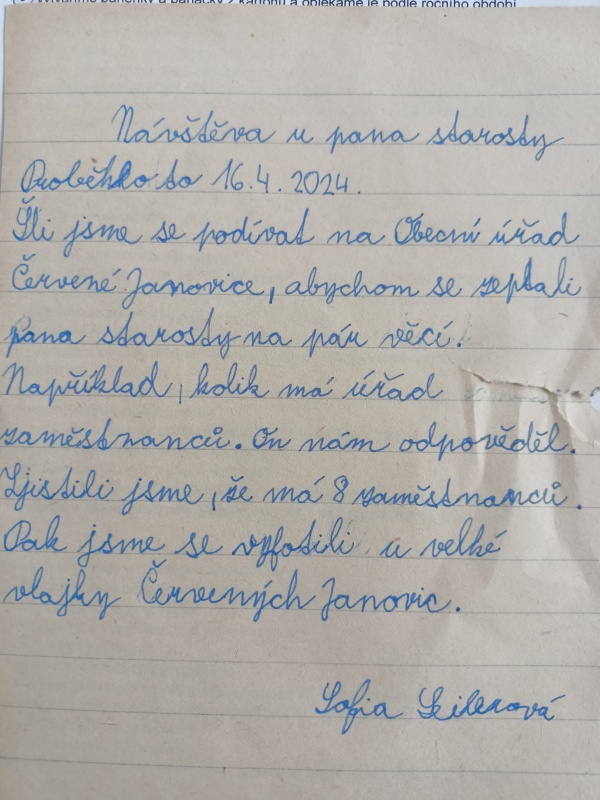 (‑) Vytváříme panenky a panáčky z kartonu a oblékáme je podle ročního období
Návštěva u pana starosty
Proběhlo to 16.4. 2024.
Šli jsme se podívat na Obecní úřad
Červené Janovice, abychom se zeptali
pana starosty na pár věcí.
Například, kolik má úřad
zaměstnanců. On nám odpověděl.
Zjistili jsme, že má 8 zaměstnanců.
Pak jsme se vyfotili u velké
vlajky Červených Janovic.
Sofia